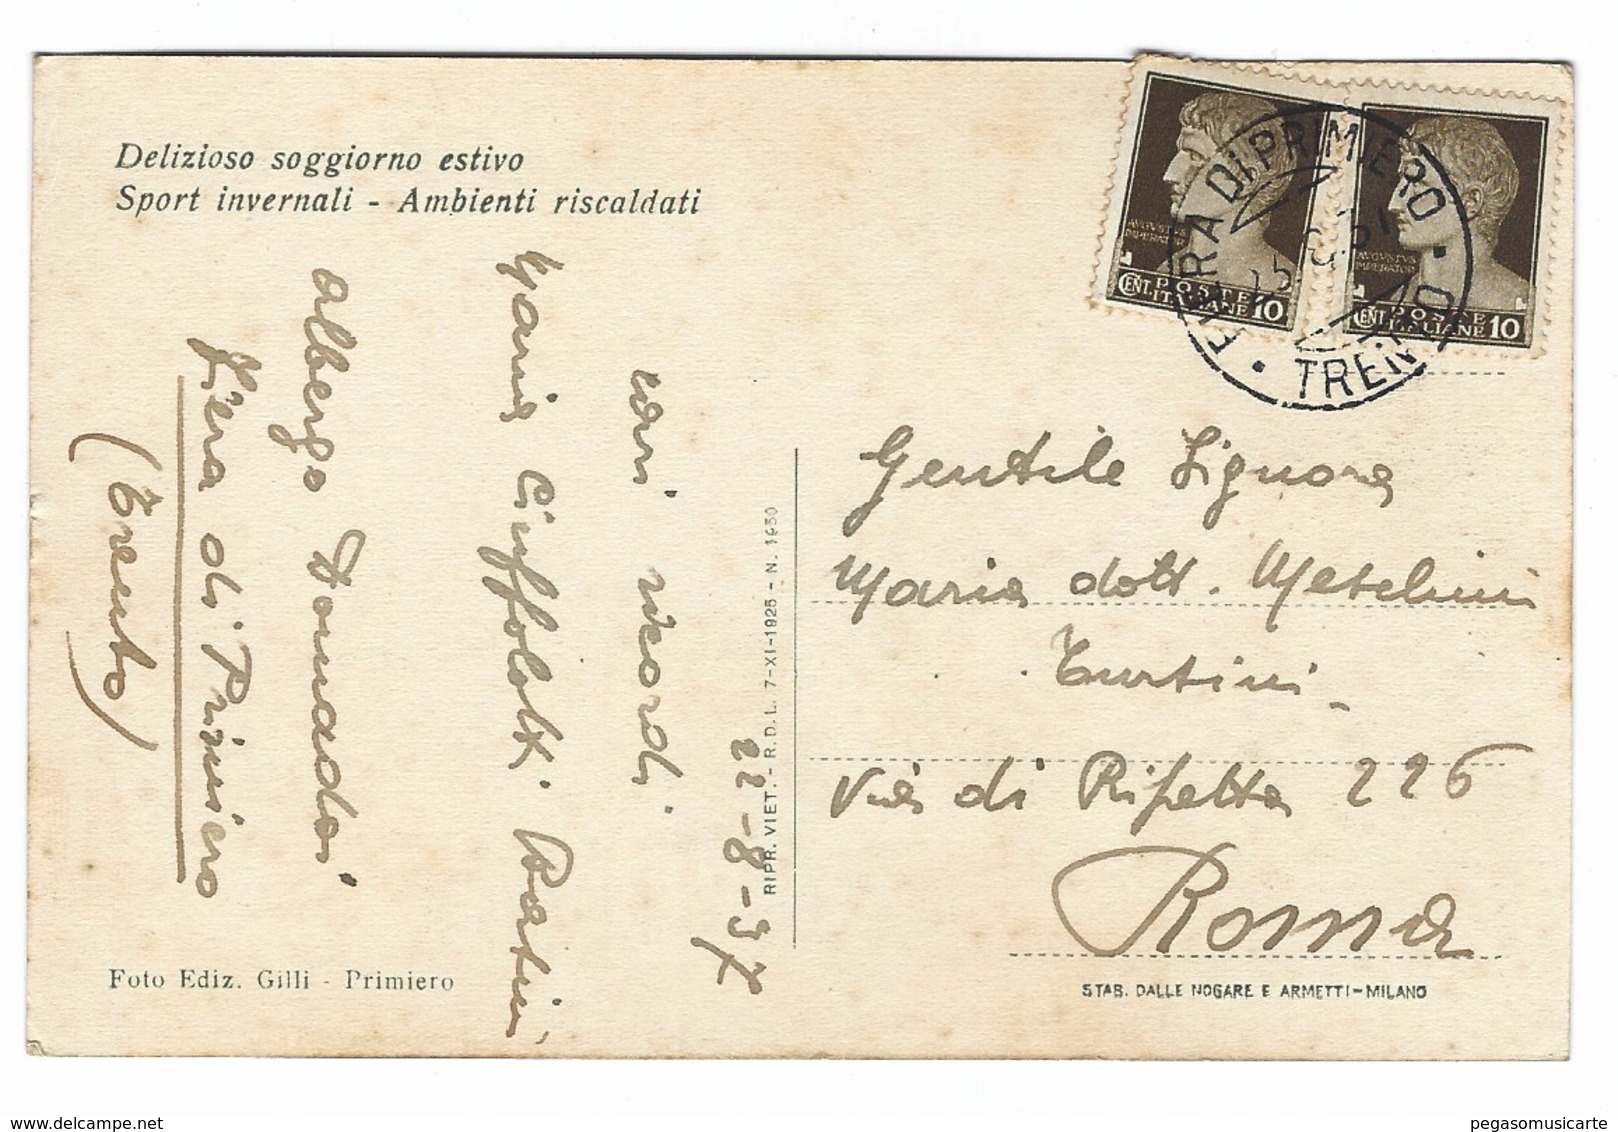 Delizioso soggiorno estivo
Sport invernali - Ambienti riscaldati
22-8-37
cari ricordi
Maria Ciuffolotti
albergo
Fiera di Primiero
(Trento)
Foto Ediz. Gilli - Primiero
RIPR. VIET. - R. D. L. 7-XI-1925 - N. 1930
AVGVSTVS
IMPERATOR
CENT. POSTE
ITALIANE 10
AVGVSTVS
IMPERATOR
CENT POSTE
ITALIANE 10
FIERA DI PRIMIERO
TRENTO
Gentile Signora
Maria dott. Meschini
Via di Ripetta 226
Roma
STAB. DALLE NOGARE E ARMETTI-MILANO
Delcampe.net
pegasomusicarte